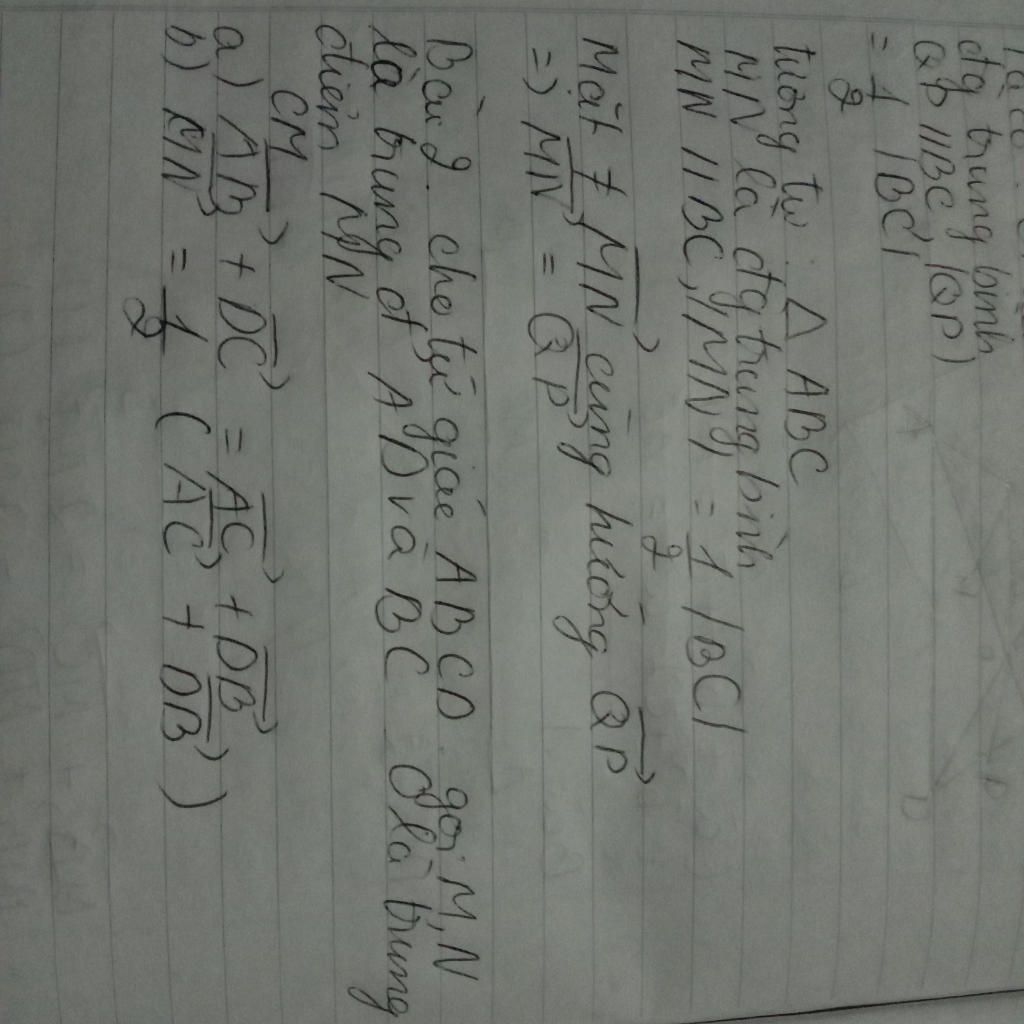 đg trung bình
QP // BC, |QP|
= 1/2 |BC|
tương tự. Δ ABC
MN là đg trung bình
MN // BC, |MN| = 1/2 |BC|
Mặt ≠ \overrightarrow{MN} cùng hướng \overrightarrow{QP}
=> \overrightarrow{MN} = \overrightarrow{QP}
Bài 2. cho tứ giác ABCD. gọi M, N
là trung đ' AD và BC O là trung
điểm MN
CM
a) \overrightarrow{AB} + \overrightarrow{DC} = \overrightarrow{AC} + \overrightarrow{DB}
b) \overrightarrow{MN} = 1/2 (\overrightarrow{AC} + \overrightarrow{DB})